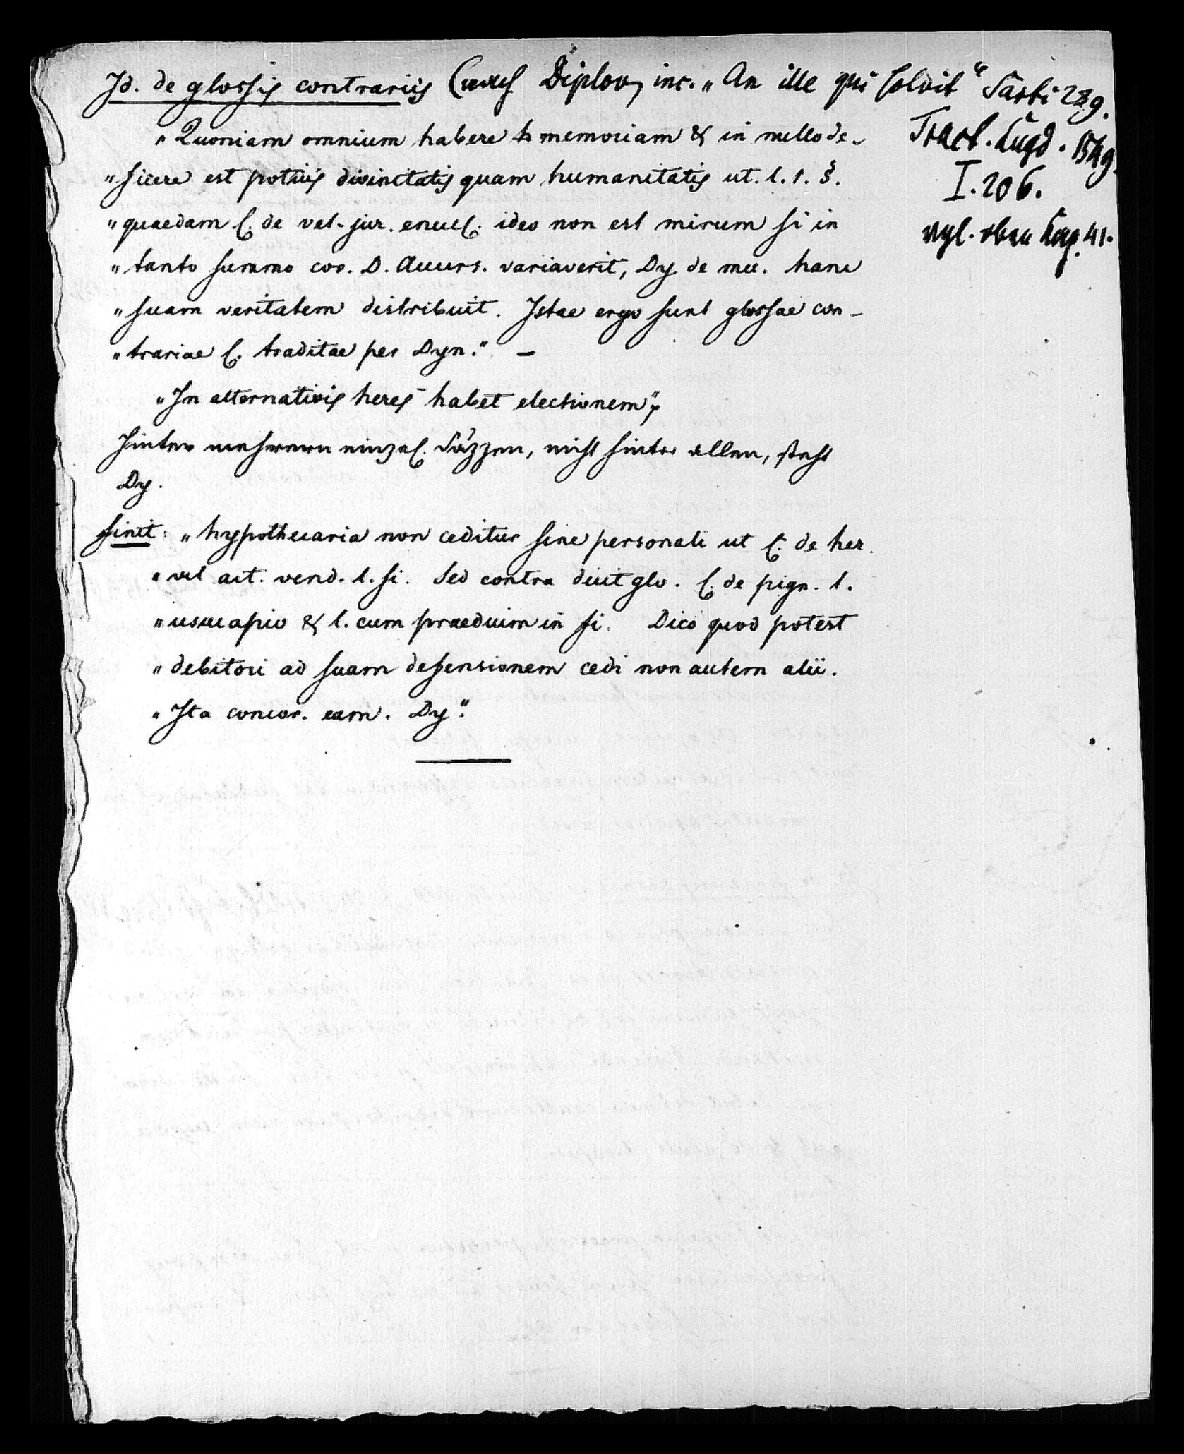 Id. de glossis contrariis (auch Diplov, inc. „An ille qui solvit“ Sarti 239.
Tract. Lugd. 1549.
I. 206.
vgl. oben Kap. 41.
„Quoniam omnium habere memoriam & in nullo de-
„ficere est potius divinitatis quam humanitatis ut. l. 1. §.
„quaedam C. de vet. jur. enucl. ideo non est mirum si in
„tanto summo cor. D. Accurs. variaverit, Dy. de mu. hanc
„suam veritatem distribuit. Istae ergo sunt glossae con-
„trariae C. traditae per Dyn.“ —
„In alternativis heres habet electionem“,
hinter mehreren einzel. Säzzen, nicht hinter allen, steht
Dy.
finit: „hypothecaria non ceditur sine personali ut C. de her.
„vel act. vend. l. si. Sed contra dicit glo. C. de pign. l.
„usucapio & l. cum praedium in fi. Dico quod potest
„debitori ad suam defensionem cedi non autem alii.
„Ita concor. eam. Dy“.